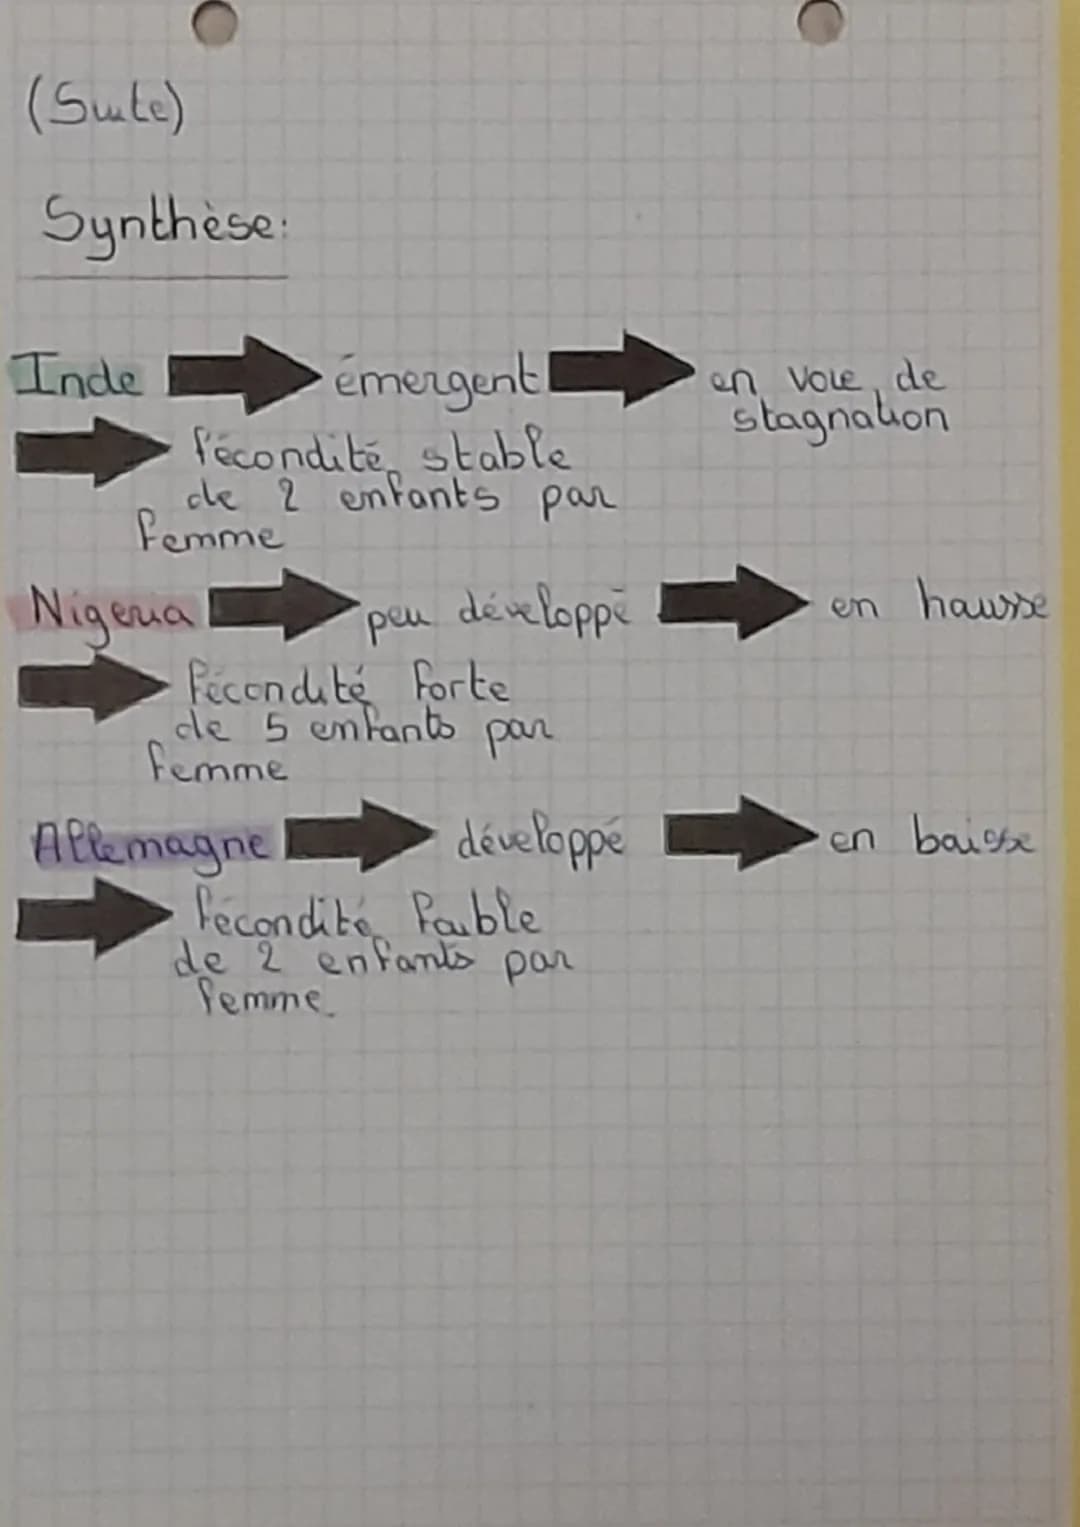 (Suite)
Synthèse:
Inde émergent en voie de
stagnation
fécondité stable
de 2 enfants par
femme
Nigeria peu développé en hausse
fécondité forte
de 5 enfants par
femme
Allemagne développé en baisse
fécondité faible
de 2 enfants par
femme.